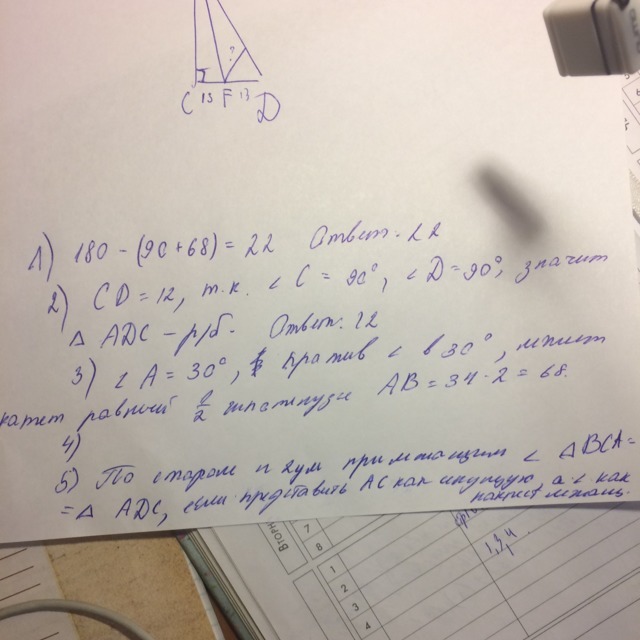 ?
C 13 F 13 D
1) 180 - (90 + 68) = 22 Ответ: 22
2) CD = 12, т.к. ∠ C = 90°, ∠ D = 90°, значит
△ ADC - р/б. Ответ: 12
3) ∠ A = 30°, против ∠ в 30°, лежит
катет равный 1/2 гипотенузы AB = 34 · 2 = 68.
4)
5) По стороне и 2ум прилежащим ∠ △ BCA =
= △ ADC, если представить AC как и ∠ как
накрест лежащ.
Вторн
7
8
1
2
3
4
1,3,4